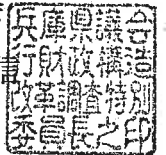 兵庫県議会
行財政構造
改革調査特別
委員長之印